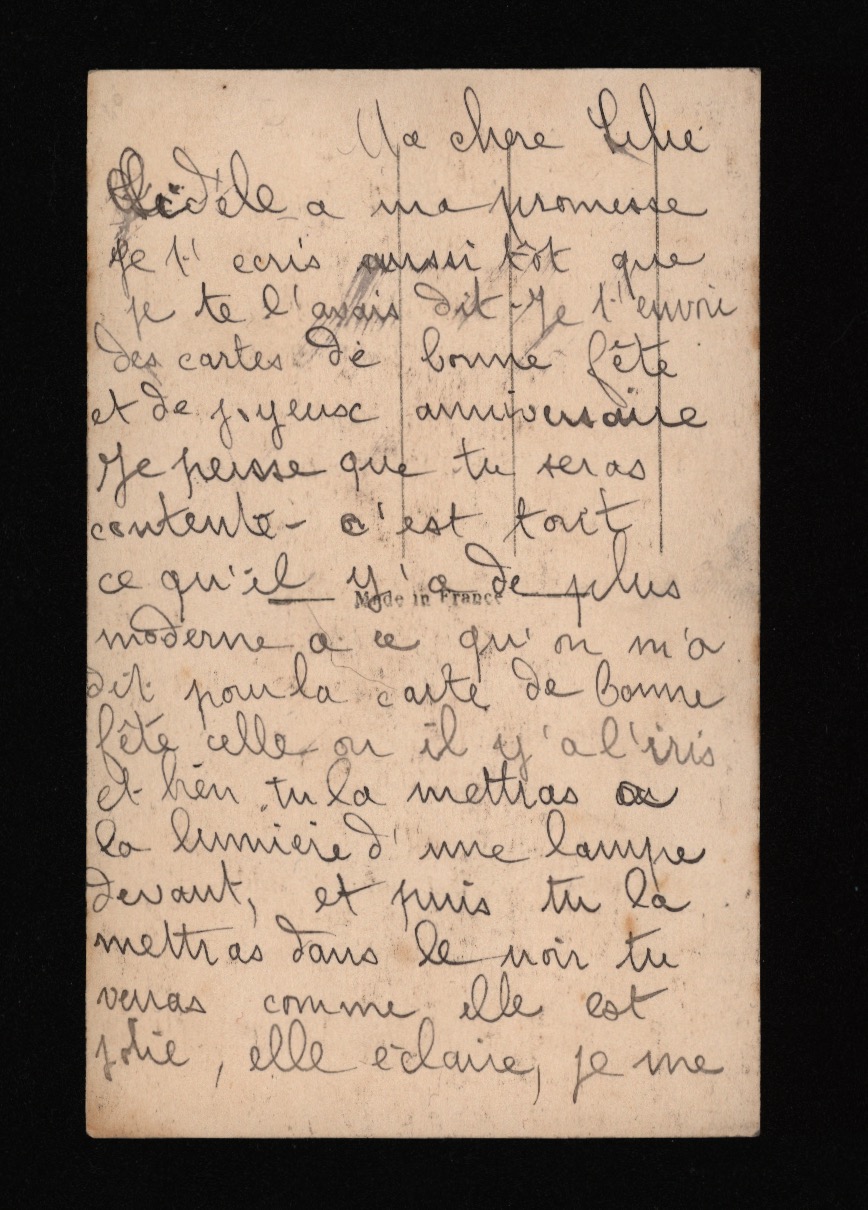 Ma chere Lilie
Fidèle a ma promesse
Je t' ecris aussi tôt que
je te l'avais dit - Je t'envoie
des cartes de bonne fête
et de joyeux anniversaire
Je pense que tu seras
contente - c'est tout
ce qu'il y'a de plus
Made in France
moderne a ce qu'on m'a
dit pour la carte de bonne
fête celle ou il y'a l'iris
et bien tu la mettras a
la lumiere d'une lampe
devant, et puis tu la
mettras dans le noir tu
verras comme elle est
jolie, elle éclaire, je me